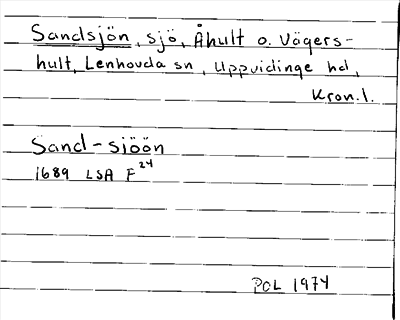 Sandsjön, sjö, Åhult o. Vägers-
hult, Lenhovda sn, Uppvidinge hd,
Kron.l.
Sand-siöön
1689 LSA F 24
POL 1974